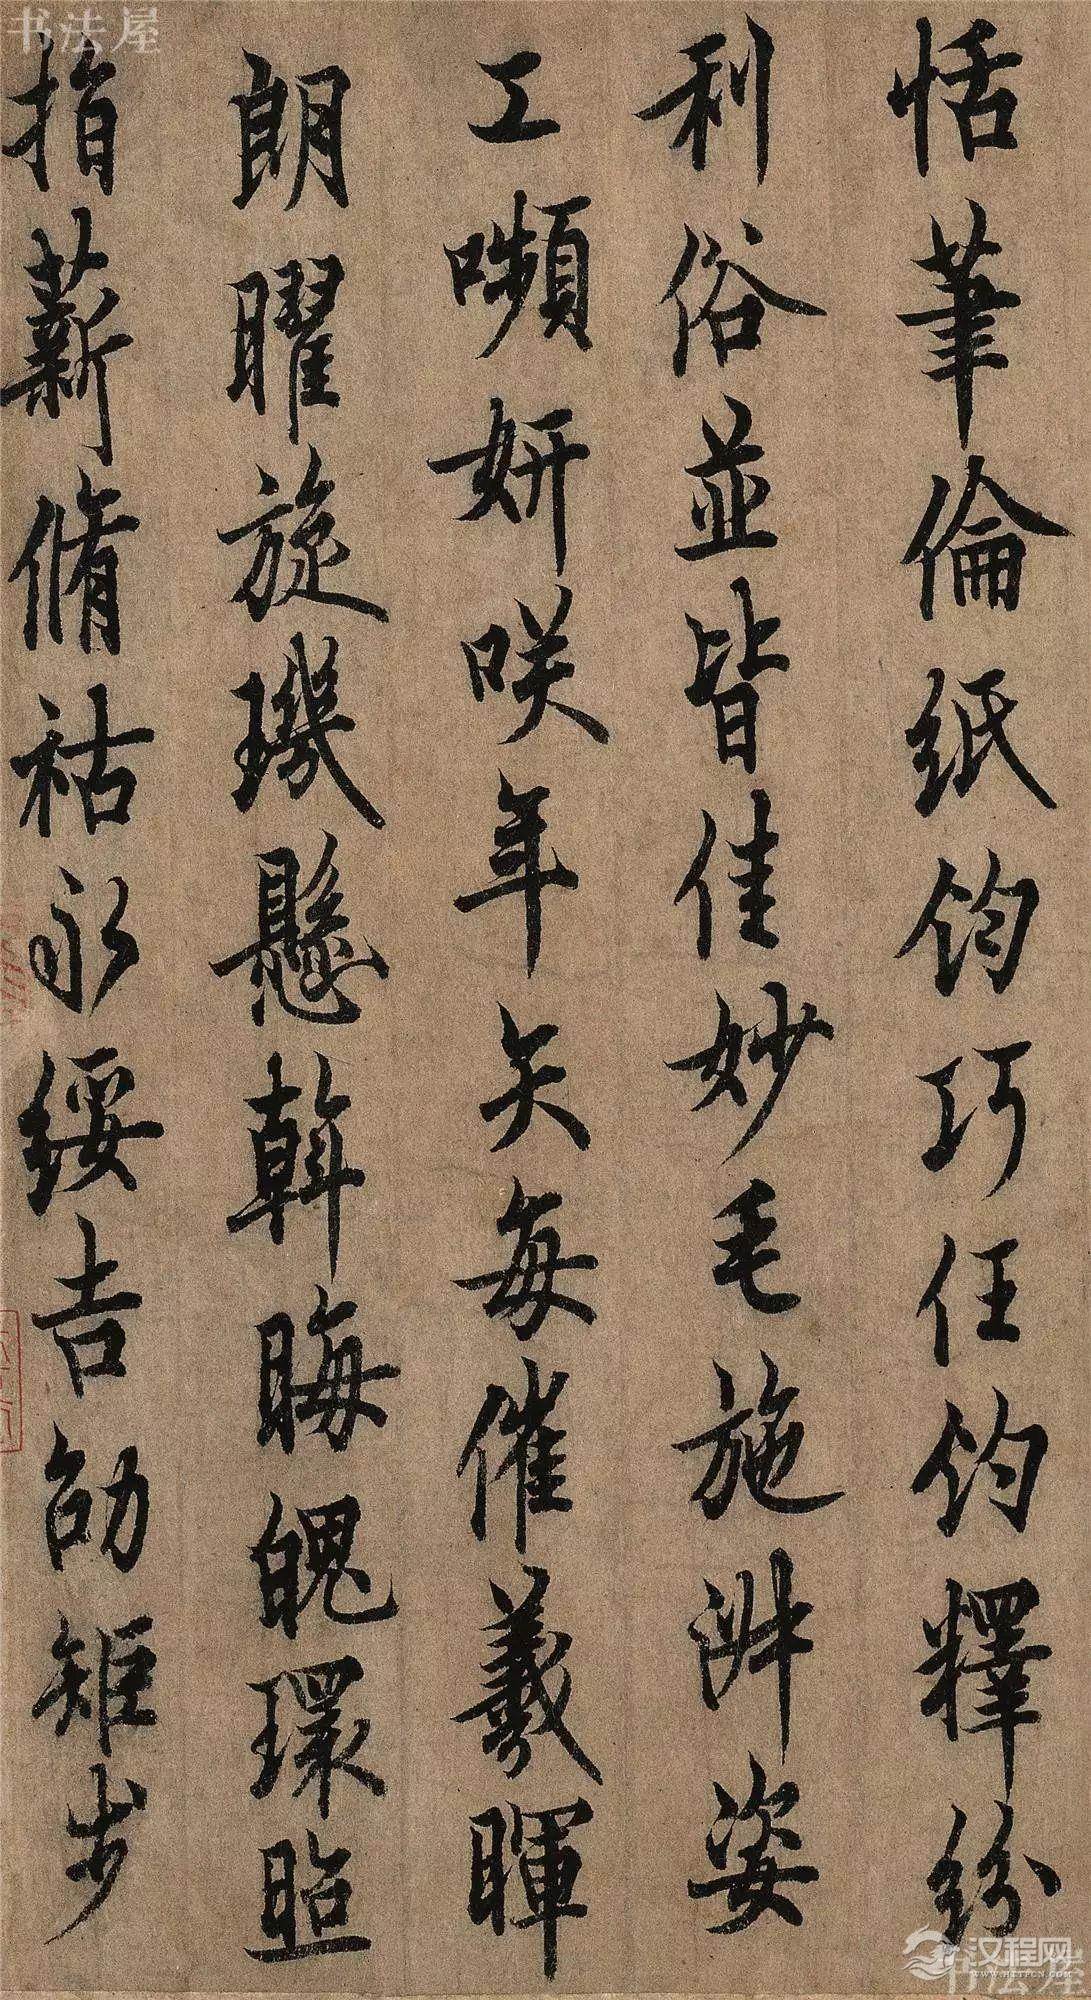 恬筆倫紙鈞巧任鈞釋紛
利俗並皆佳妙毛施淑姿
工嚬妍咲年矢每催羲暉
朗曜旋璣懸斡晦魄環照
指薪脩祜永綏吉劭矩步
书法屋
汉程网
WWW.HTTPCN.COM
书法屋